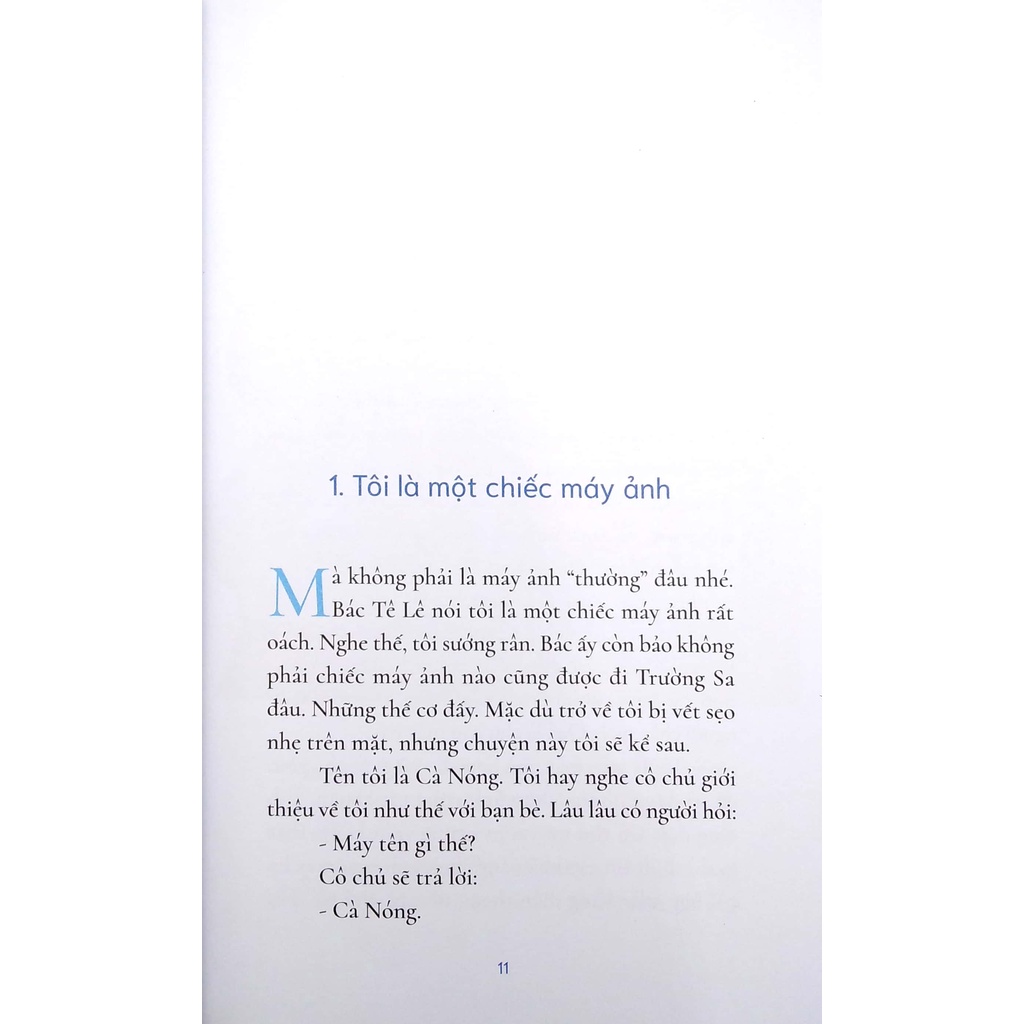 1. Tôi là một chiếc máy ảnh
Mà không phải là máy ảnh “thường” đâu nhé.
Bác Tê Lê nói tôi là một chiếc máy ảnh rất
oách. Nghe thế, tôi sướng rân. Bác ấy còn bảo không
phải chiếc máy ảnh nào cũng được đi Trường Sa
đâu. Những thế cơ đấy. Mặc dù trở về tôi bị vết sẹo
nhẹ trên mặt, nhưng chuyện này tôi sẽ kể sau.
Tên tôi là Cà Nóng. Tôi hay nghe cô chủ giới
thiệu về tôi như thế với bạn bè. Lâu lâu có người hỏi:
- Máy tên gì thế?
Cô chủ sẽ trả lời:
- Cà Nóng.
11